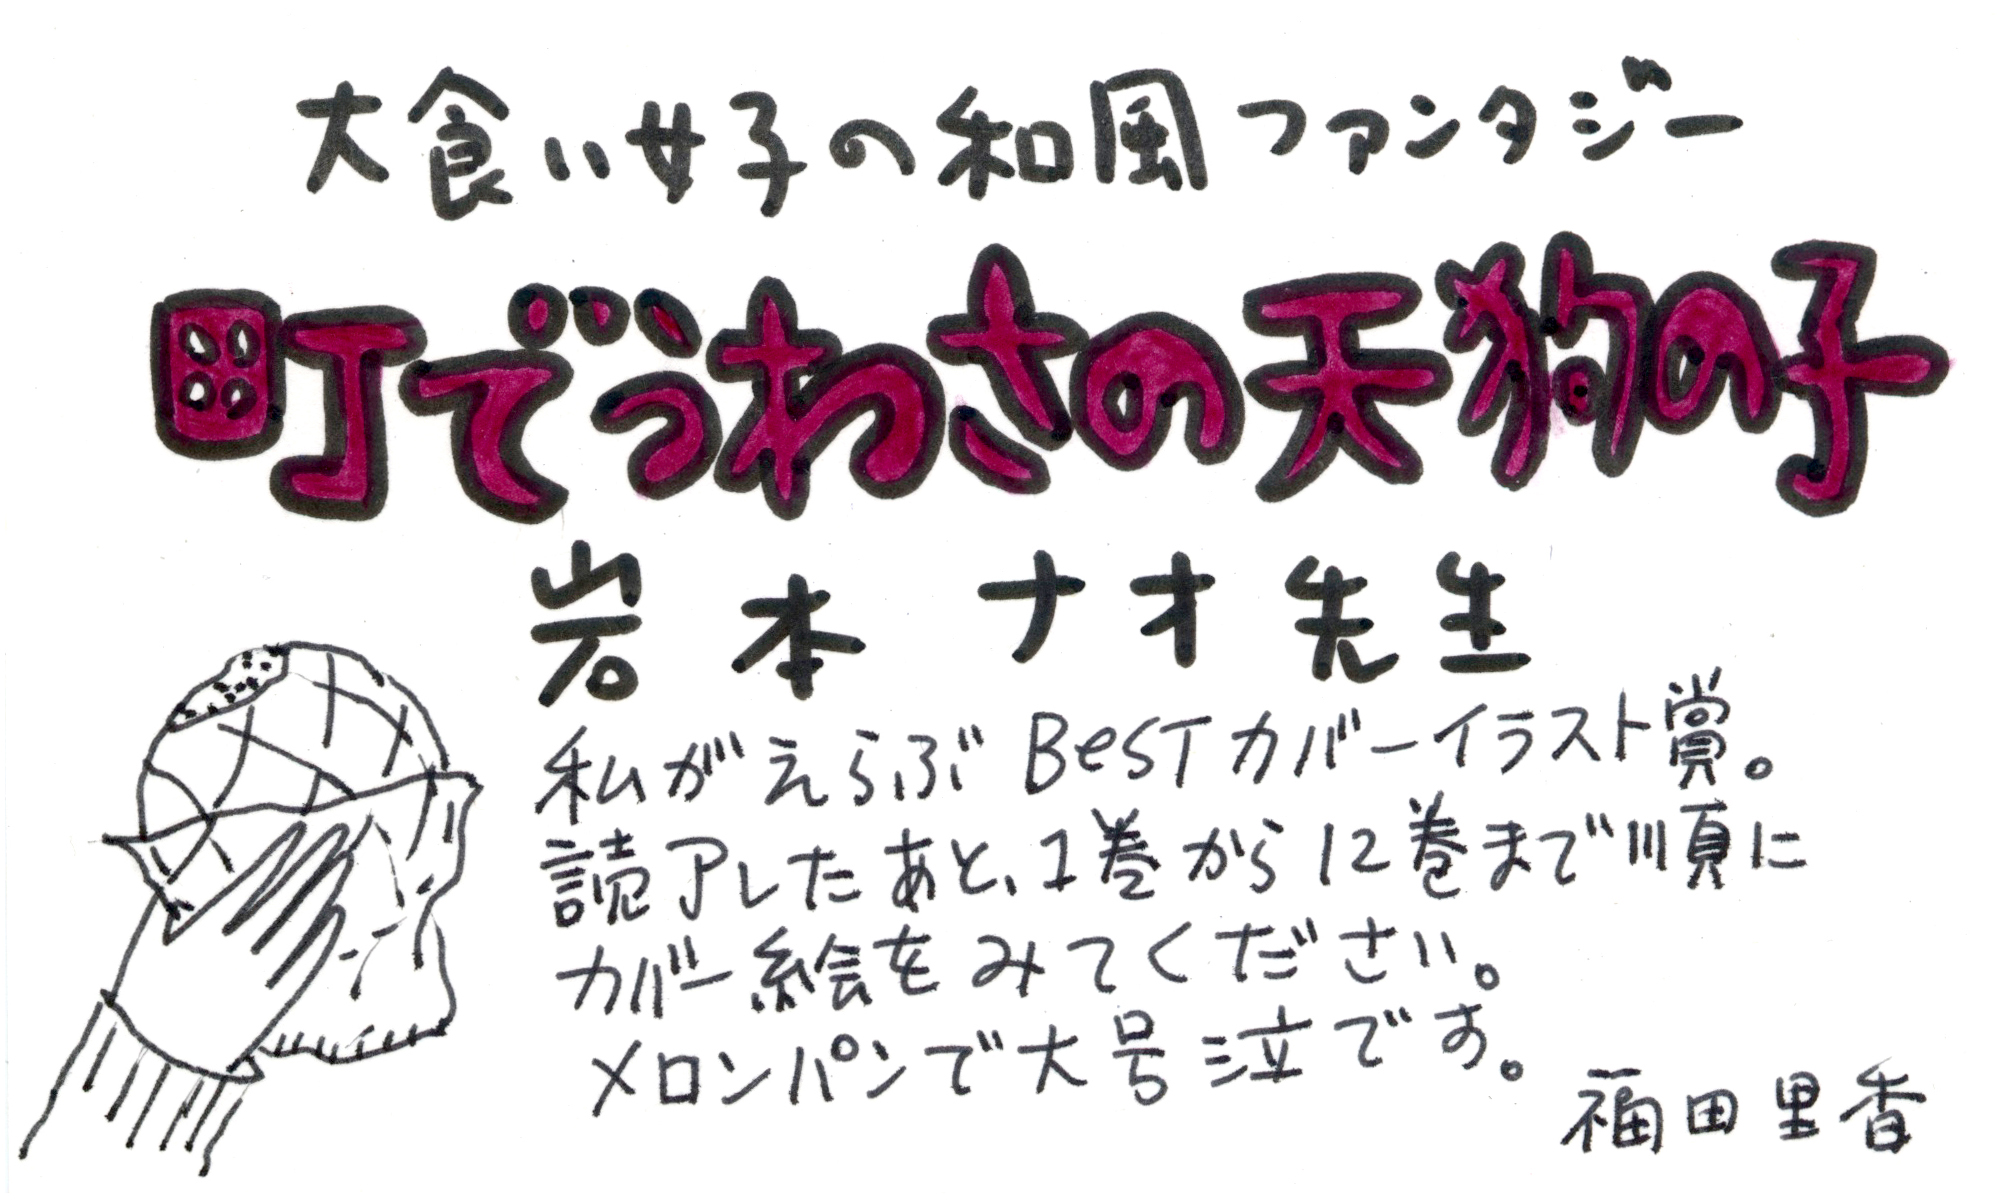 大食い女子の和風ファンタジー
町でうわさの天狗の子
岩本ナオ先生
私がえらぶBeSTカバーイラスト賞。
読了したあと、1巻から12巻まで順に
カバー絵をみてください。
メロンパンで大号泣です。
福田里香